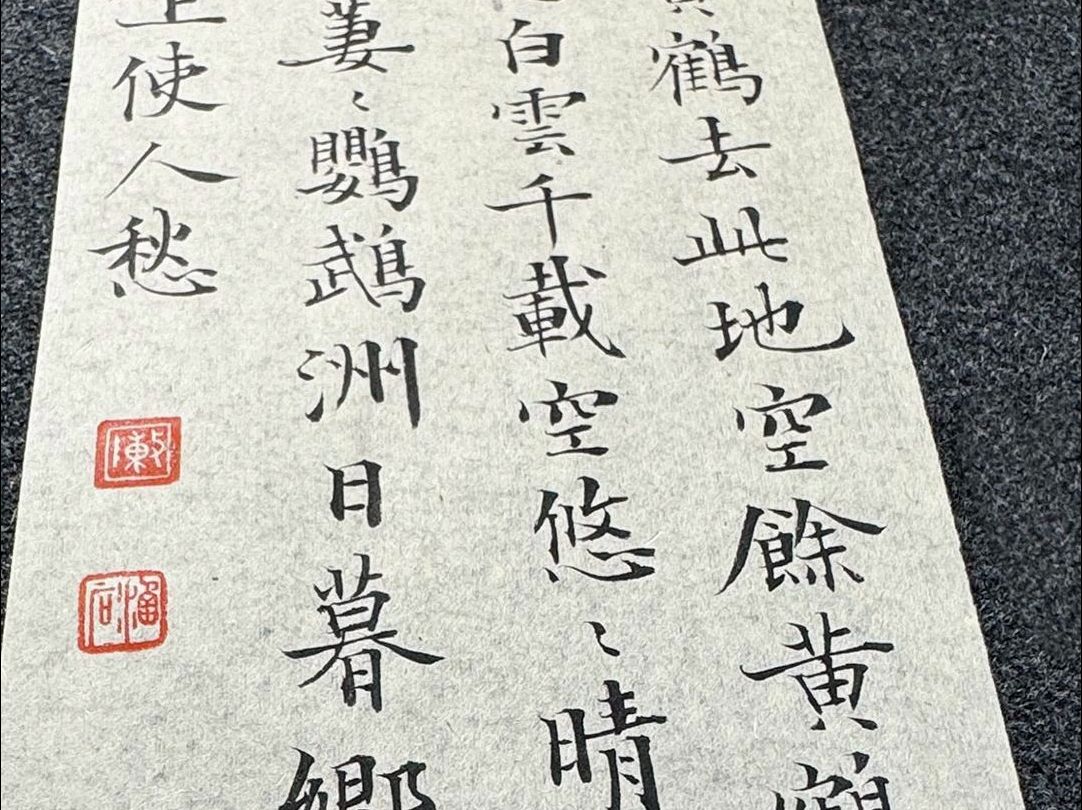 鶴去此地空餘黄鶴
白雲千載空悠〻晴
萋〻鸚鵡洲日暮鄉
上使人愁